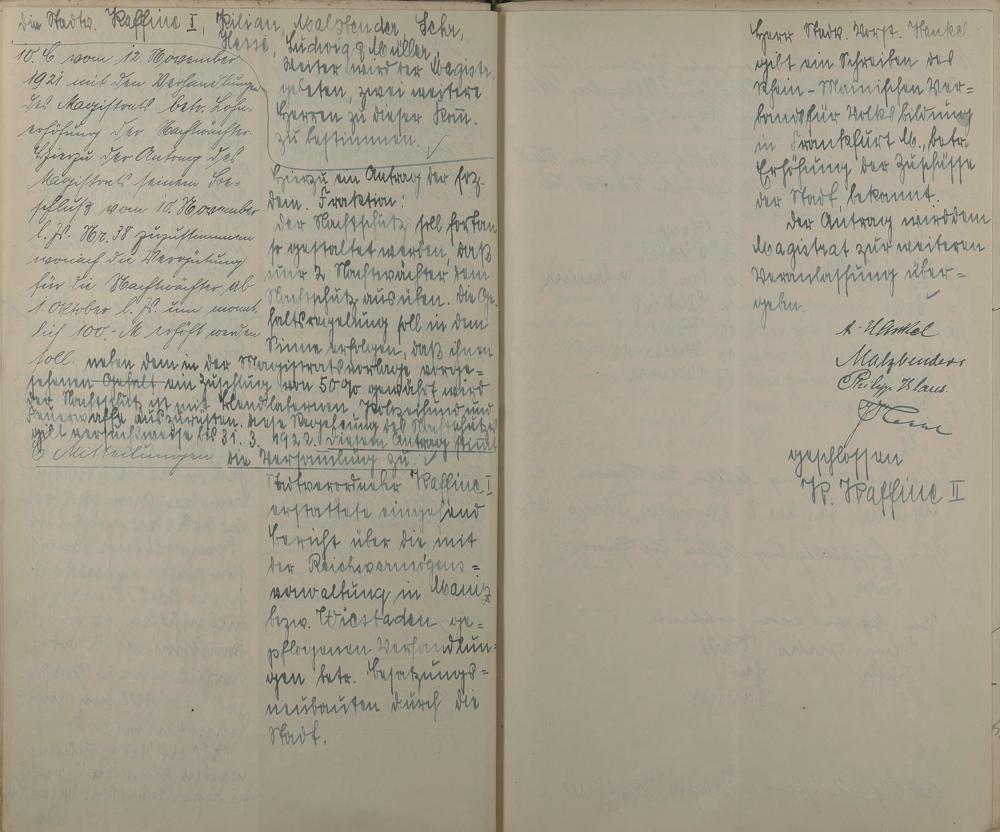 die Stadtv. Kaffine I, Kilian, Malzbender, Sehr,
Hesse, Ludwig & Müller,
weiter wird der Magistr.
gebeten, zwei weitere
Herren zu dieser Kom.
zu bestimmen.
10. C vom 12. November
1921 mit den Verhandlungen
des Magistrats betr. Lohn-
erhöhung der Nachtwächter.
Hierzu der Antrag des
Magistrats seinem Be-
schluß vom 10. November
l. Js. Nr. 38 zuzustimmen
wonach die Vergütung
für die Nachtwächter ab
1. Oktober l. Js. um monat-
lich 100,- M erhöht werden
soll.
Hierzu ein Antrag der soz.
dem. Fraktion:
Der Nachtschutz soll fortan
so gestaltet werden, daß
nur 2 Nachtwächter dem
Nachtschutz ausüben. Die Ge-
haltsregelung soll in dem
Sinne erfolgen, daß ihnen
neben dem in der Magistratsvorlage vorge-
sehenen Gehalt ein Zuschlag von 50% gewährt wird
Der Nachtschutz ist mit Blendlaternen, Polizeihund und
Feuerwaffe auszurüsten. Diese Regelung des Nachtschutzes
gilt versuchsweise bis 31. 3. 1922. Diesem Antrag stimt
die Versamlung zu.
C Mitteilungen.
Stadtverordneter Kaffine I
erstattete eingehend
Bericht über die mit
der Reichsvermögens-
verwaltung in Mainz
bezw. Wiesbaden ge-
pflogenen Verhandlun-
gen betr. Besatzungs-
neubauten durch die
Stadt.
Herr Stadtv. Vorst. Henkel
gibt ein Schreiben des
Rhein-Mainischen Ver-
bands für Volksbildung
in Frankfurt M., betr.
Erhöhung der Zuschüsse
der Stadt, bekannt.
Der Antrag wird dem
Magistrat zur weiteren
Veranlassung über-
geben.
A. Henkel
Malzbender
Philipp Claus
Hesse
geschlossen
K. Kaffine II